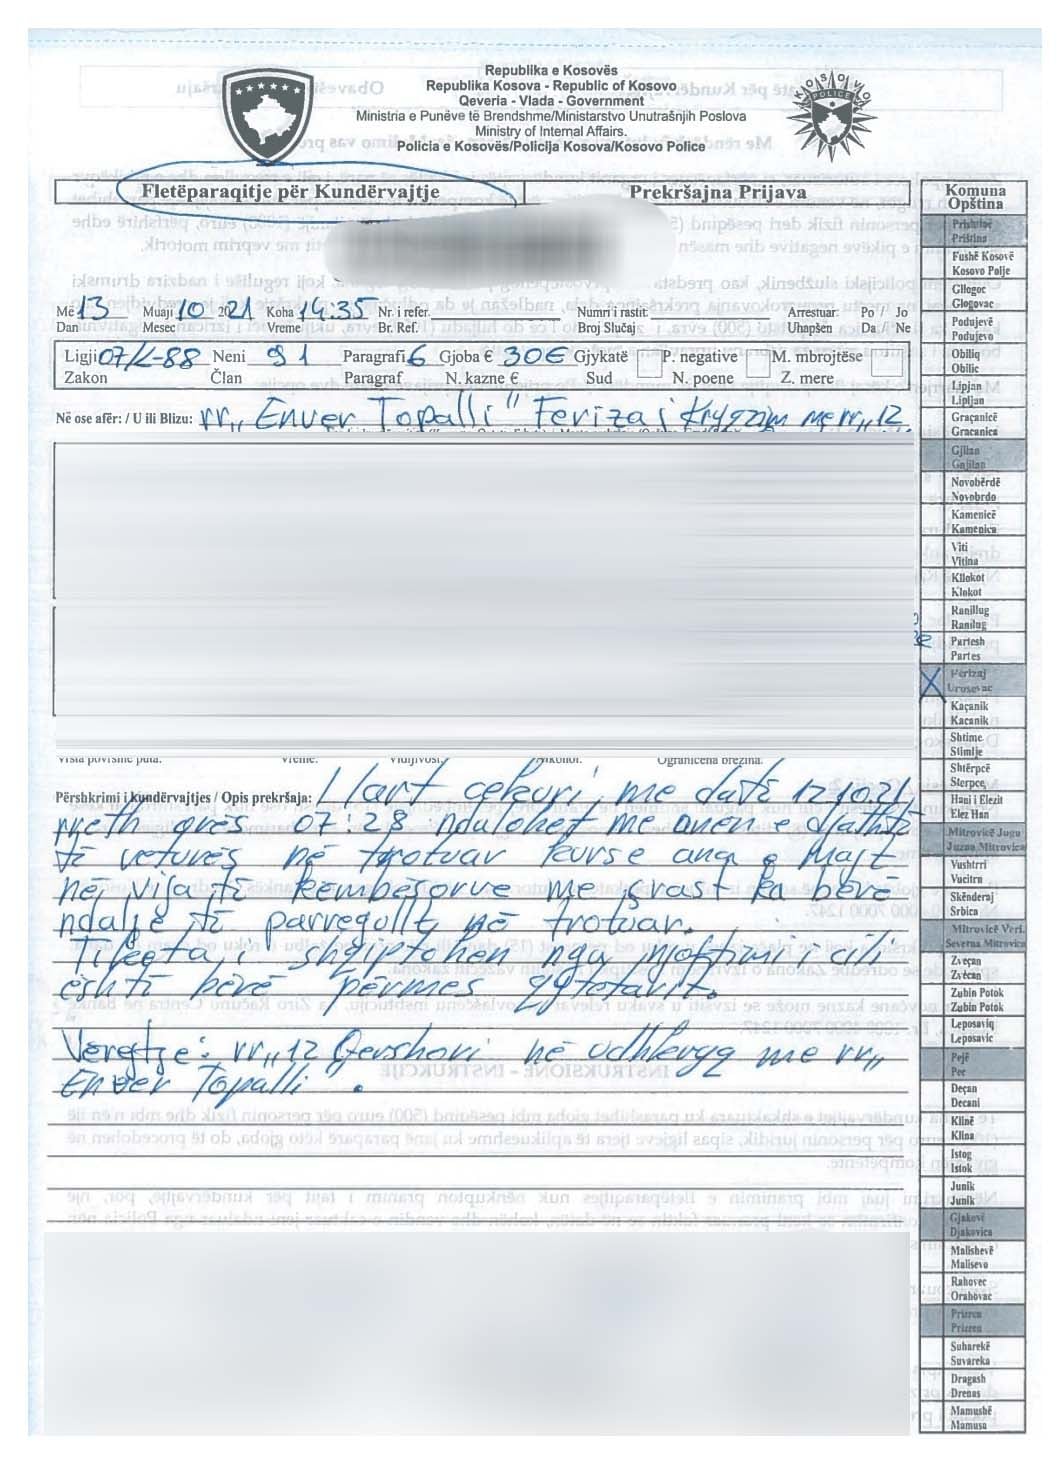 Republika e Kosovës
Republika Kosova - Republic of Kosovo
Qeveria - Vlada - Government
Ministria e Punëve të Brendshme/Ministarstvo Unutrašnjih Poslova
Ministry of Internal Affairs.
Policia e Kosovës/Policija Kosova/Kosovo Police
KOSOVO
POLICE
Fletëparaqitje për Kundërvajtje Prekršajna Prijava
Më 13 Muaji 10 2021 Koha 14:35 Nr. i refer. Numri i rastit: Arrestuar Po / Jo
Dan Mesec Vreme Br. Ref. Broj Slučaj Uhapšen Da / Ne
Ligji 07/L-88 Neni 91 Paragrafi 6 Gjoba € 30€ Gjykatë P. negative M. mbrojtëse
Zakon Član Paragraf N. kazne € Sud N. poene Z. mere
Në ose afër: / U ili Blizu: rr,, Enver Topalli" Ferizaj Kryqzim me rr,, 12.
Vrsta površine puta: Vreme: Vidljivost: Alkohol: Ograničena brzina:
Përshkrimi i kundërvajtjes / Opis prekršaja: I lart cekuri, me datë 12.1021
rreth orës 07:28 ndalohet me anën e djathtë
të veturës në trotuar kurse ana e majt
në vijat të kembësorve me ç'rast ka bërë
ndalje të parregullt në trotuar.
Tiketa i shqiptohen nga informimi i cili
është bërë përmes qytetarit.
Verejtje: rr,, 12 Qershori në udhkryq me rr,,
Enver Topalli".
Komuna
Opština
Prishtinë
Priština
Fushë Kosovë
Kosovo Polje
Gllogoc
Glogovac
Podujevë
Podujevo
Obiliq
Obilic
Lipjan
Lipljan
Graçanicë
Gracanica
Gjilan
Gnjilan
Novobërdë
Novobrdo
Kamenicë
Kamenica
Viti
Vitina
Kllokot
Klokot
Ranillug
Ranilug
Partesh
Partes
X Ferizaj
Urosevac
Kaçanik
Kacanik
Shtime
Stimlje
Shtërpcë
Sterpce
Hani i Elezit
Elez Han
Mitrovicë Jugu
Juzna Mitrovica
Vushtrri
Vucitrn
Skënderaj
Srbica
Mitrovicë Veri.
Severna Mitrovica
Zveçan
Zvécan
Zubin Potok
Zubin Potok
Leposaviq
Leposavic
Pejë
Pec
Deçan
Decani
Klinë
Klina
Istog
Istok
Junik
Junik
Gjakovë
Djakovica
Malishevë
Malisevo
Rahovec
Orahovac
Prizren
Prizren
Suharekë
Suvareka
Dragash
Drenas
Mamushë
Mamusa